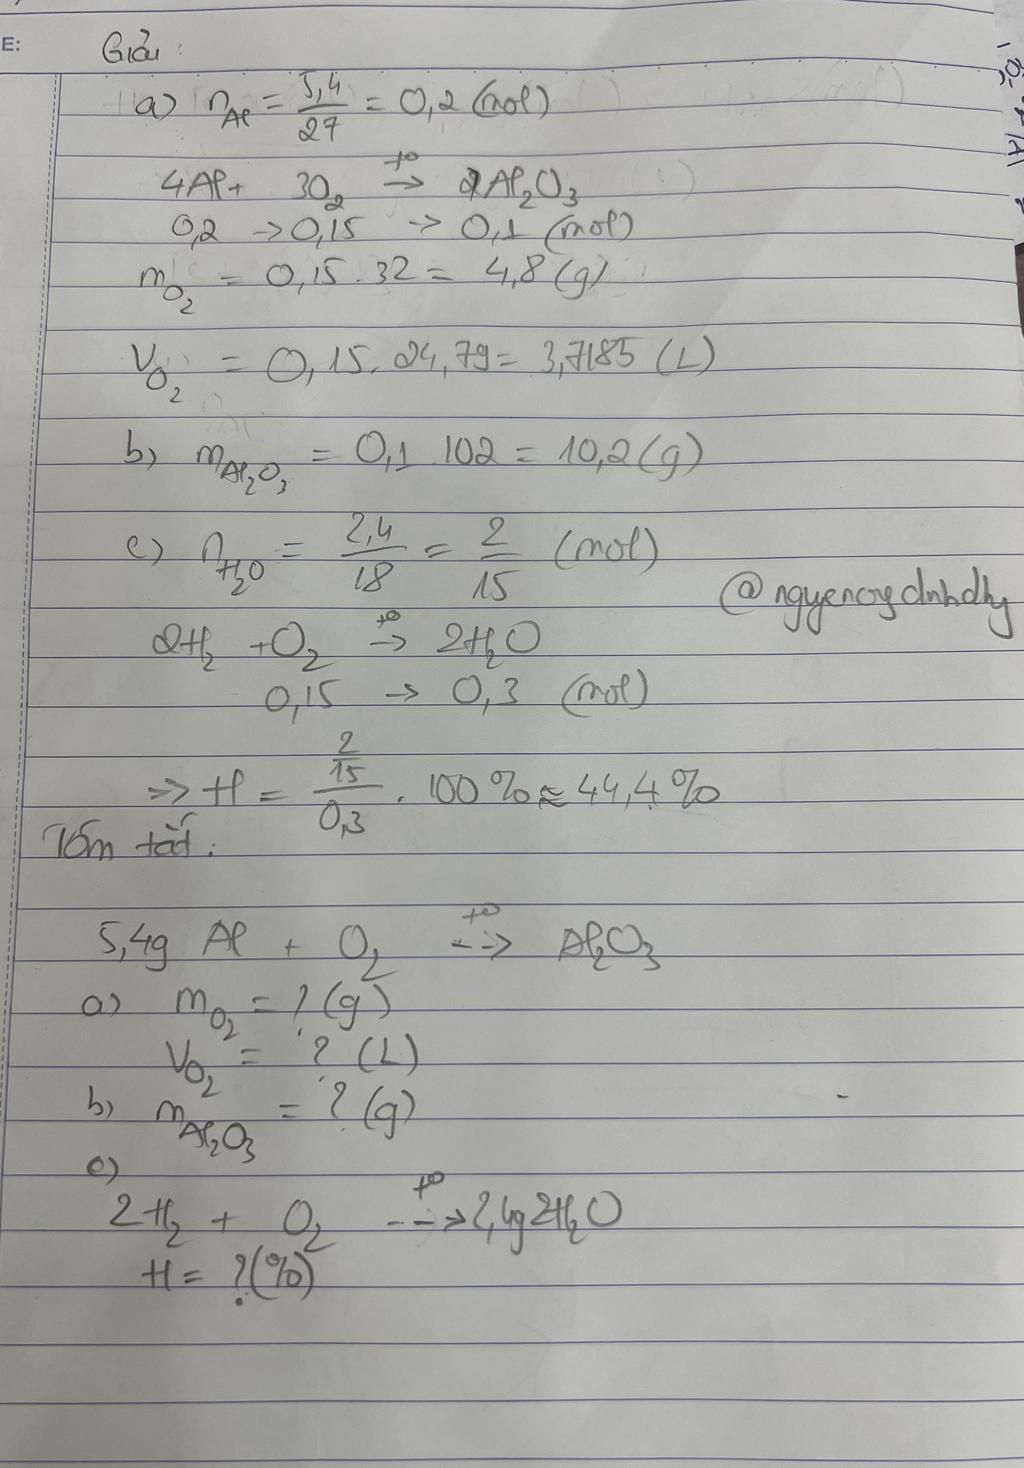 E:
Giải:
a) n_Al = 5,4/27 = 0,2 (mol)
4Al + 3O₂ →(t°) 2Al₂O₃
0,2 → 0,15 → 0,1 (mol)
m_O₂ = 0,15 . 32 = 4,8 (g)
V_O₂ = 0,15 . 24,79 = 3,7185 (L)
b) m_Al₂O₃ = 0,1 . 102 = 10,2 (g)
c) n_H₂O = 2,4/18 = 2/15 (mol)
2H₂ + O₂ →(t°) 2H₂O
0,15 → 0,3 (mol)
=> H = (2/15)/0,3 . 100% ≈ 44,4%
Tóm tắt:
5,4g Al + O₂ --→(t°) Al₂O₃
a) m_O₂ = ? (g)
V_O₂ = ? (L)
b) m_Al₂O₃ = ? (g)
c)
2H₂ + O₂ --→(t°) 2,4g 2H₂O
H = ? (%)